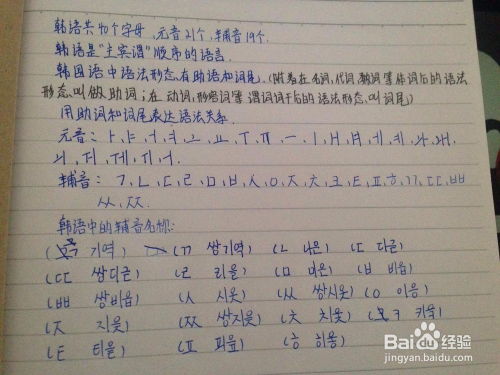 韩语共40个字母,元音21个,辅音19个.
韩语是"主宾谓"顺序的语言.
韩国语中语法形态有助语和词尾.(附着在名词,代词,数词等体词后的语法
形态,叫做助词;在动词,形容词等谓词词干后的语法形态,叫词尾)
用助词和词尾表达语法关系.
元音:ㅏ,ㅑ,ㅓ,ㅕ,ㅗ,ㅛ,ㅜ,ㅠ,ㅡ,ㅣ,ㅐ,ㅒ,ㅔ,ㅖ,ㅘ,ㅙ,
ㅚ,ㅝ,ㅞ,ㅟ,ㅢ
辅音:ㄱ,ㄴ,ㄷ,ㄹ,ㅁ,ㅂ,ㅅ,ㅇ,ㅈ,ㅊ,ㅋ,ㅌ,ㅍ,ㅎ,ㄲ,ㄸ,ㅃ
ㅆ,ㅉ.
韩语中的辅音名称:
(ㄱ 기역) (ㄲ 쌍기역) (ㄴ 니은) (ㄷ 디귿)
(ㄸ 쌍디귿) (ㄹ 리을) (ㅁ 미음) (ㅂ 비읍)
(ㅃ 쌍비읍) (ㅅ 시옷) (ㅆ 쌍시옷) (ㅇ 이응)
(ㅈ 지읒) (ㅉ 쌍지읒) (ㅊ 치읓) (ㅋ 키읔)
(ㅌ 티읕) (ㅍ 피읖) (ㅎ 히읗)
Baidu 经验
jingyan.baidu.com